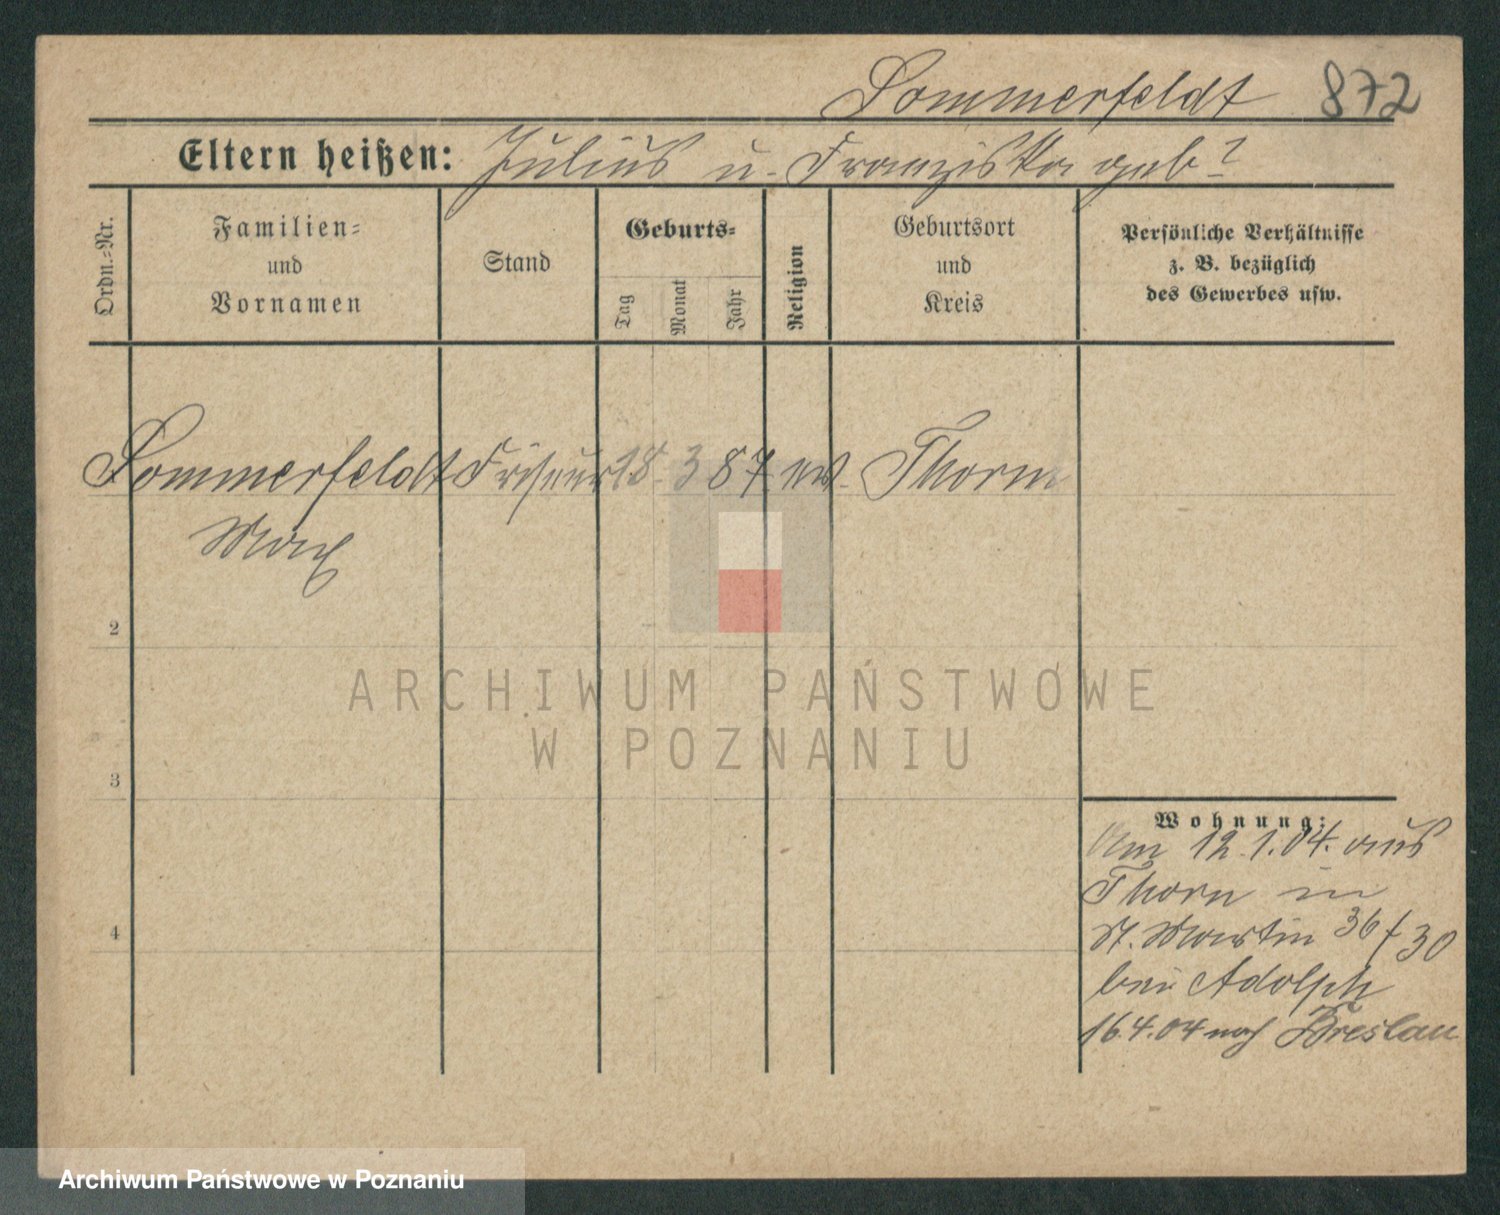 Sommerfeldt 872
Eltern heißen: Julius u. Franziska geb?
Ordn.-Nr.
Familien-
und
Vornamen
Stand
Geburts-
Tag
Monat
Jahr
Religion
Geburtsort
und
Kreis
Persönliche Verhältnisse
z. B. bezüglich
des Gewerbes usw.
Sommerfeldt Friseur 18. 3 87 ev. Thorn
Max
2
3
4
Wohnung:
Am 12.1.04. aus
Thorn in
St. Martin 36/30
bei Adolph
16.4.04 nach Breslau
ARCHIWUM PAŃSTWOWE
W POZNANIU
Archiwum Państwowe w Poznaniu